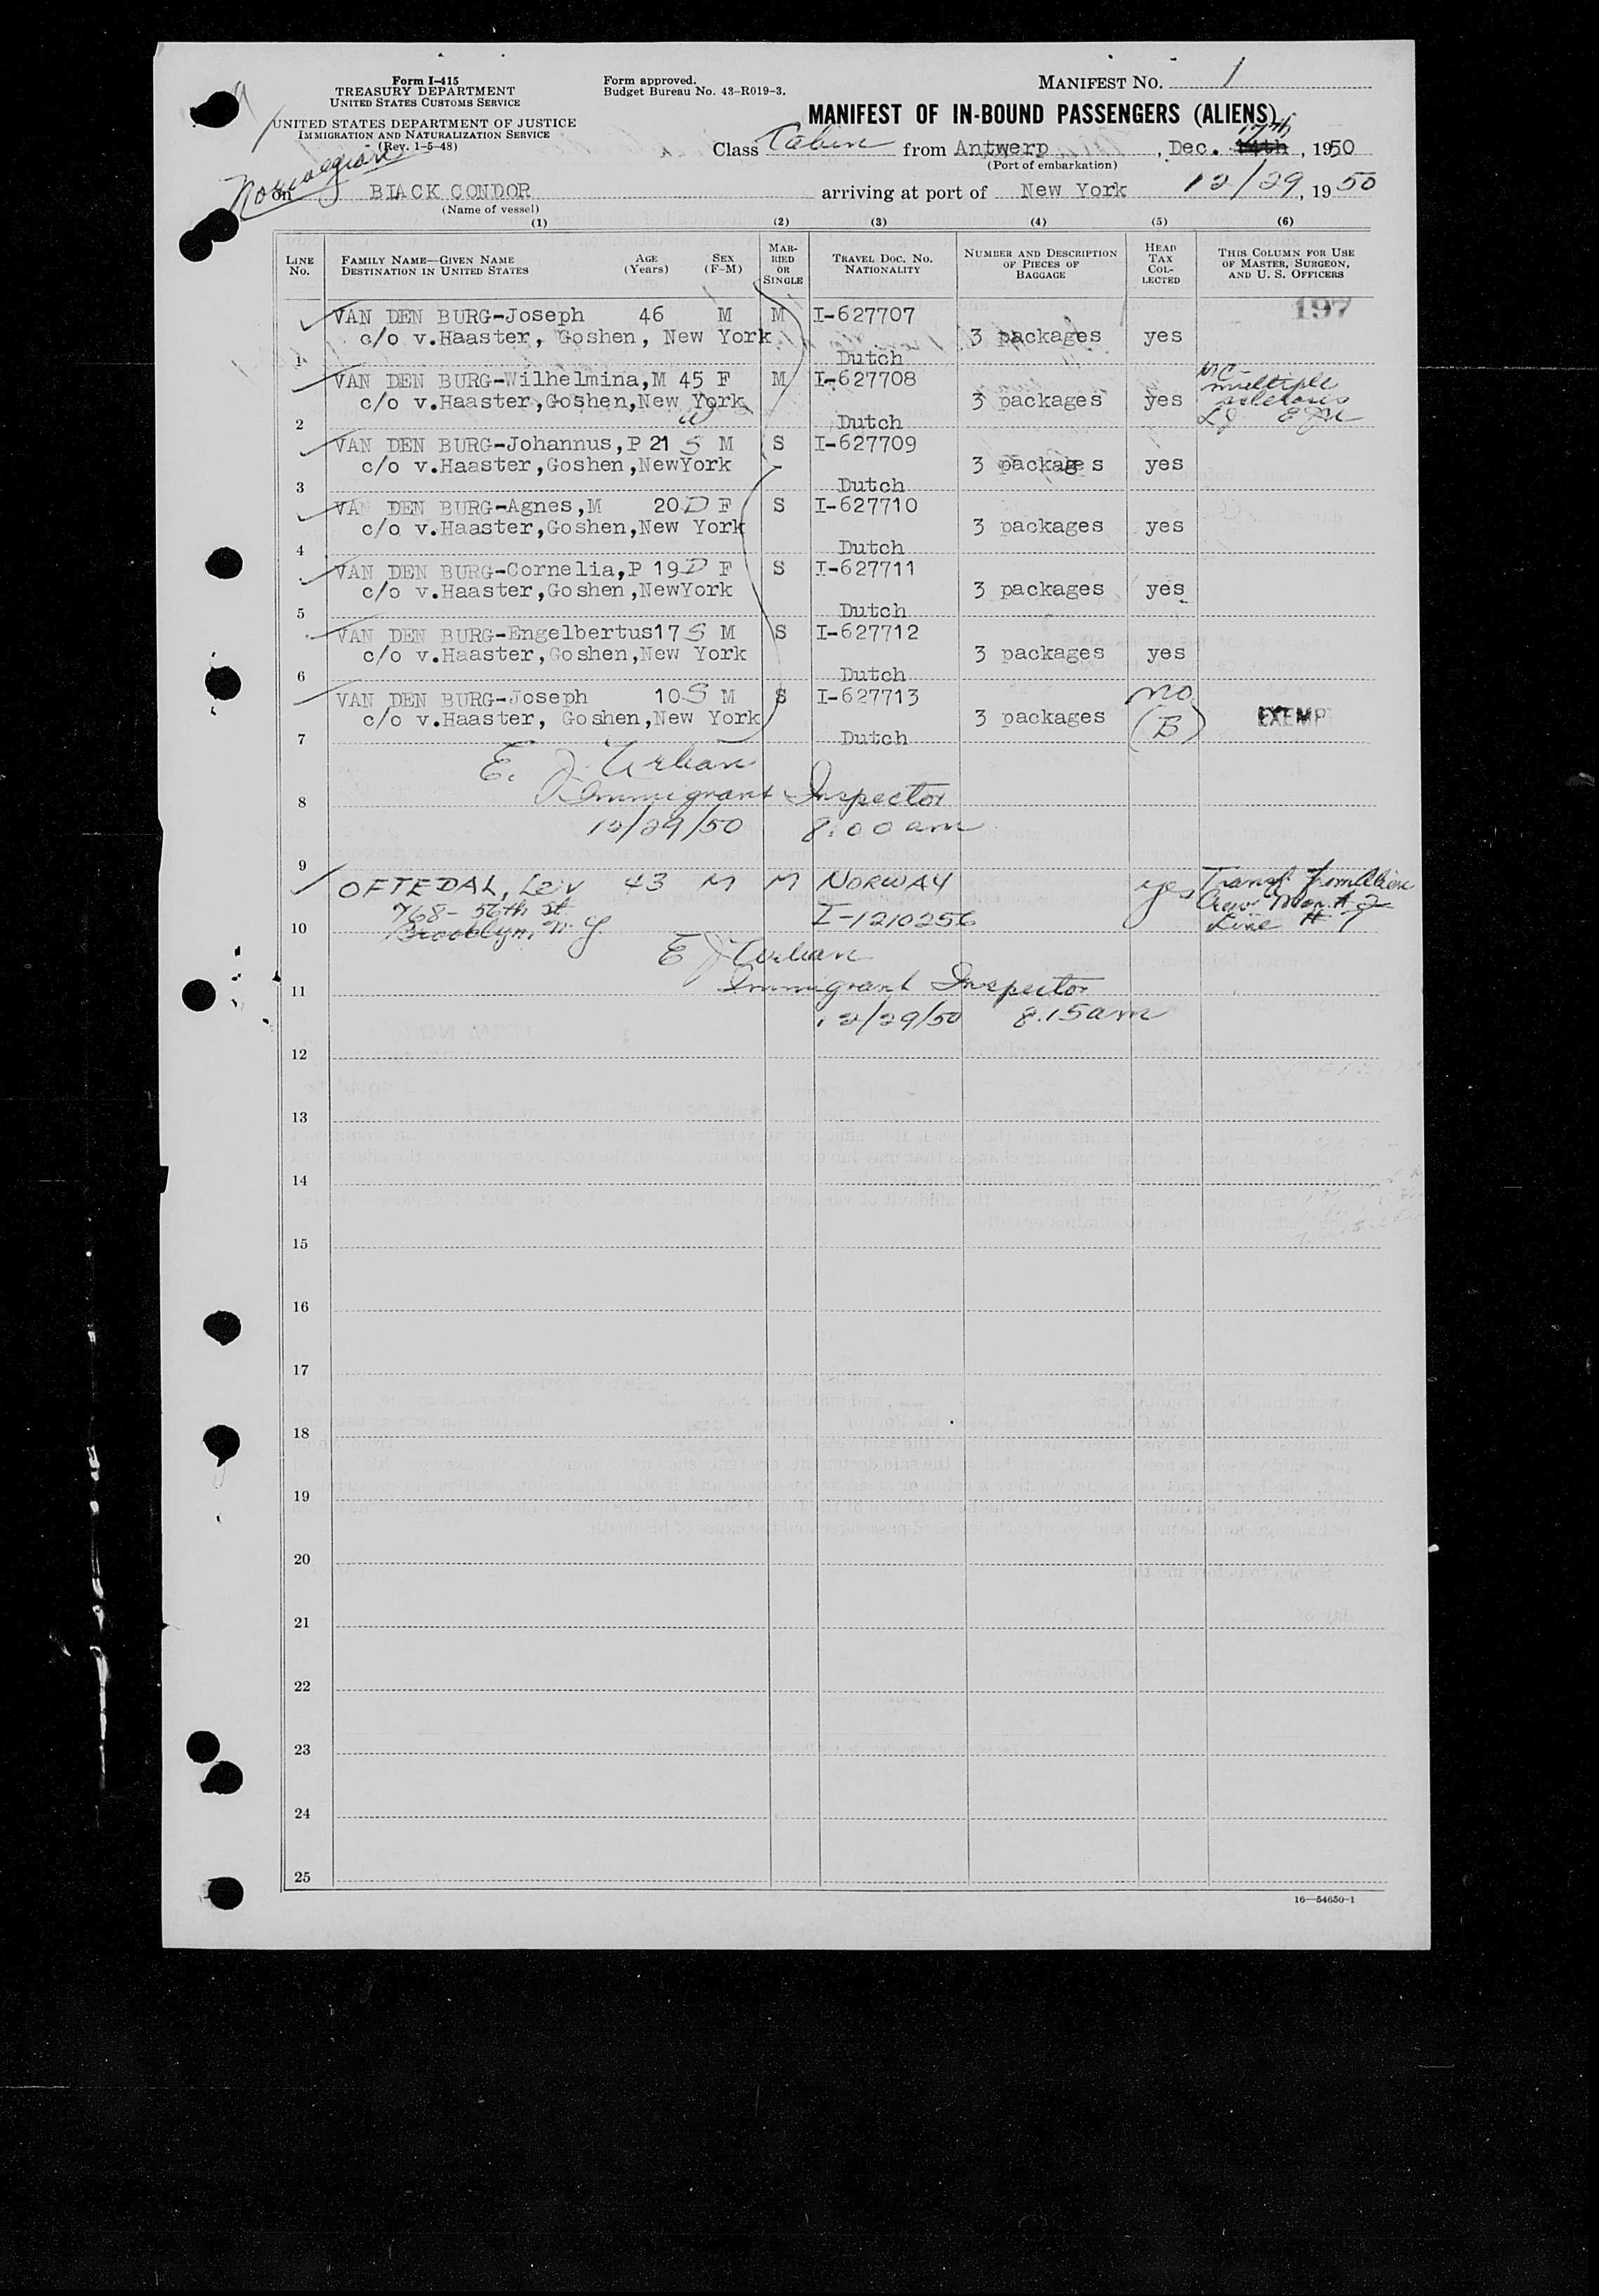 Form I-415
TREASURY DEPARTMENT
UNITED STATES CUSTOMS SERVICE
UNITED STATES DEPARTMENT OF JUSTICE
IMMIGRATION AND NATURALIZATION SERVICE
(Rev. 1-5-48)
Form approved.
Budget Bureau No. 43-R019-3.
MANIFEST No. 1
MANIFEST OF IN-BOUND PASSENGERS (ALIENS)
17th
Class Cabin from Antwerp, Dec. 14th, 1950
(Port of embarkation)
Norwegian
on BLACK CONDOR arriving at port of New York 12/29, 1950
(Name of vessel)
(1) (2) (3) (4) (5) (6)
LINE No.
FAMILY NAME—GIVEN NAME
DESTINATION IN UNITED STATES
AGE (Years)
SEX (F-M)
MARRIED OR SINGLE
TRAVEL DOC. NO.
NATIONALITY
NUMBER AND DESCRIPTION OF PIECES OF BAGGAGE
HEAD TAX COLLECTED
THIS COLUMN FOR USE OF MASTER, SURGEON, AND U. S. OFFICERS
VAN DEN BURG-Joseph 46 M M I-627707 197
c/o v.Haaster, Goshen, New York 3 packages yes
1 Dutch
VAN DEN BURG-Wilhelmina,M 45 F M I-627708 multiple
c/o v.Haaster,Goshen,New York 3 packages yes
2 W Dutch
VAN DEN BURG-Johannus,P 21 S M S I-627709
c/o v.Haaster,Goshen,NewYork 3 packages yes
3 Dutch
VAN DEN BURG-Agnes,M 20 D F S I-627710
c/o v.Haaster,Goshen,New York 3 packages yes
4 Dutch
VAN DEN BURG-Cornelia,P 19 D F S I-627711
c/o v.Haaster,Goshen,NewYork 3 packages yes
5 Dutch
VAN DEN BURG-Engelbertus17 S M S I-627712
c/o v.Haaster,Goshen,New York 3 packages yes
6 Dutch
VAN DEN BURG-Joseph 10 S M S I-627713 no
c/o v.Haaster, Goshen,New York 3 packages (B) EXEMP
7 Dutch
E. J. Urban
8 Immigrant Inspector
12/29/50 8:00 am
9
OFTEDAL, Leiv 43 M M NORWAY yes Transf from Alien
768-56th St. Crew Man. # 2
10 Brooklyn, N.Y I-1210256 Line # 7
E J Urban
11 Immigrant Inspector
12/29/50 8.15am
12
13
14
15
16
17
18
19
20
21
22
23
24
25
16—54650-1